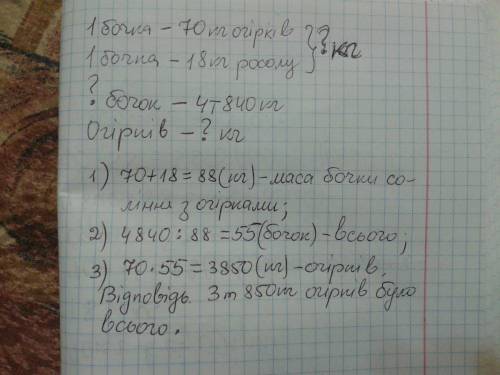 1 бочка – 70 кг огірків } ? кг
1 бочка – 18 кг росолу
? бочок – 4т 840 кг
Огірків – ? кг
1) 70+18=88(кг)-маса бочки со-
ління з огірками;
2) 4840:88=55(бочок)-всього;
3) 70·55=3850(кг)-огірків.
Відповідь. 3т 850кг огірків було
всього.